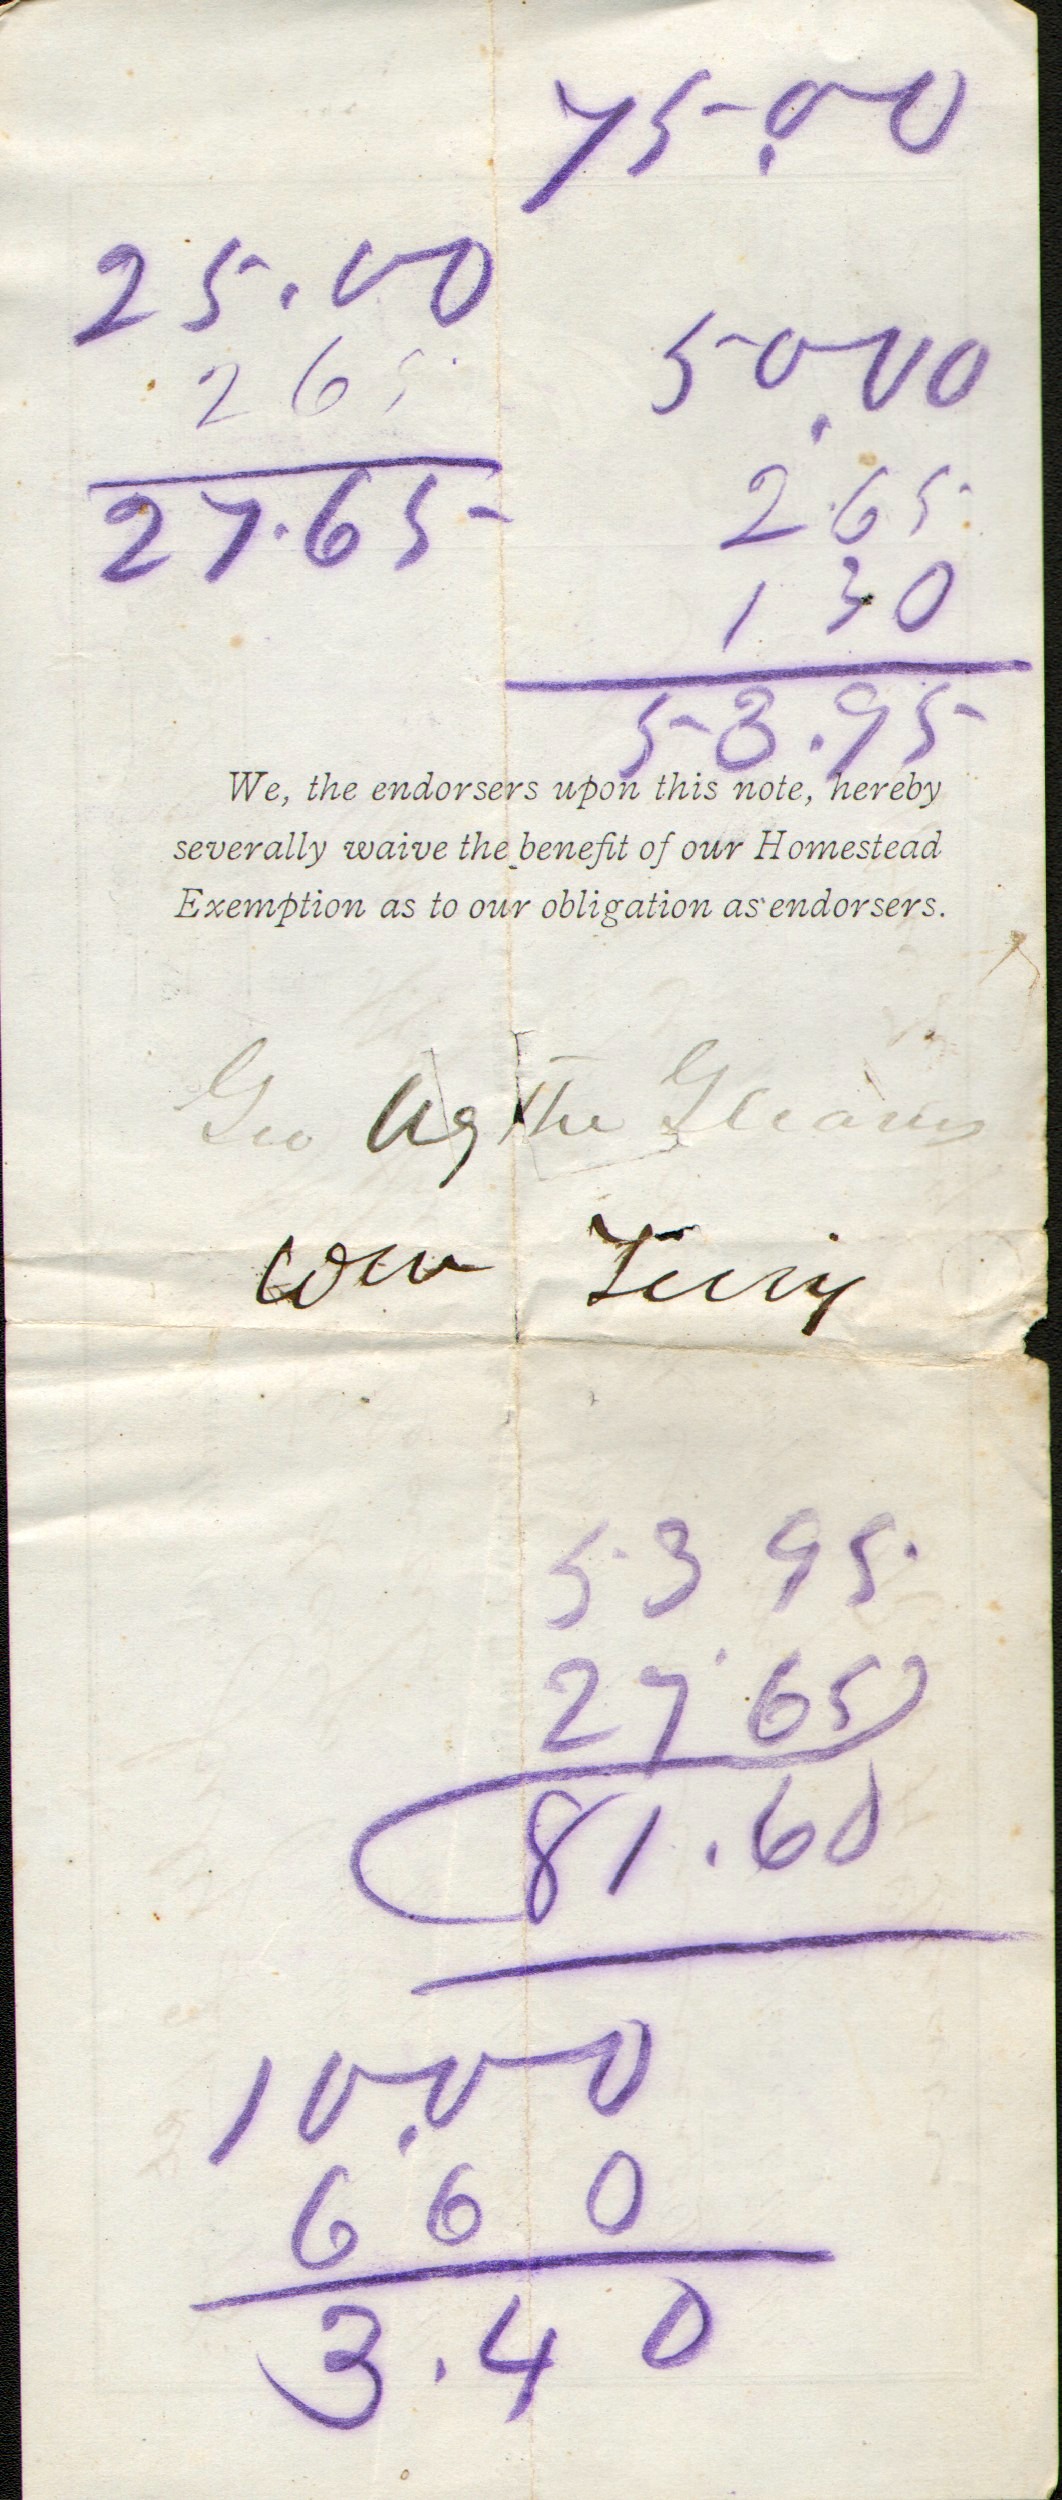 75.00
25.00
265
27.65
50.00
2.65
130
53.95
We, the endorsers upon this note, hereby
severally waive the benefit of our Homestead
Exemption as to our obligation as endorsers.
Geo
Wm Terry
53 95
27 65
81.60
10.00
6 60
3.40